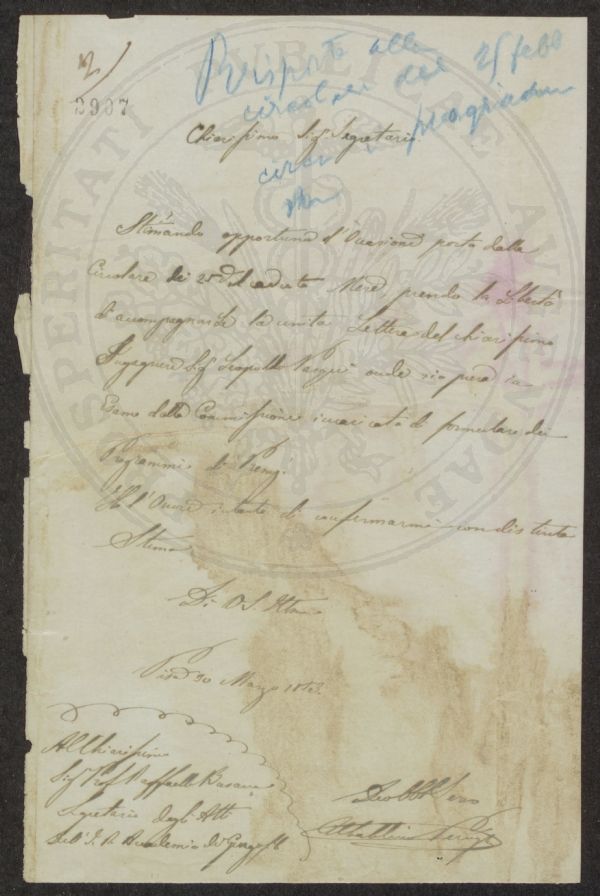 2907
Risposta alla
circolare del 25 febb
circa i programmi
Chiarissimo Sig. Segretario
PROSPERITATI PUBLICAE AUGENDAE
Stimando opportuna l'Occasione porta dalla
Circolare de' 25 del caduto Mese, prendo la Libertà
d'accompagnarle la unita Lettera del chiarissimo
Ingegnere Sig. Leopoldo onde sia presa in
Esame dalla Commissione incaricata di formulare dei
Programmi di Premj.
Ho l'Onore intanto di confermarmi con distinta
Stima
Di V. S. Illma
Pisa 30 Marzo
Al Chiarissimo
Sig. Prof. Raffaello Busacca
Segretario degli Atti
Dell' I. R. Accademia dei Georgofili
Devo Obb Servo